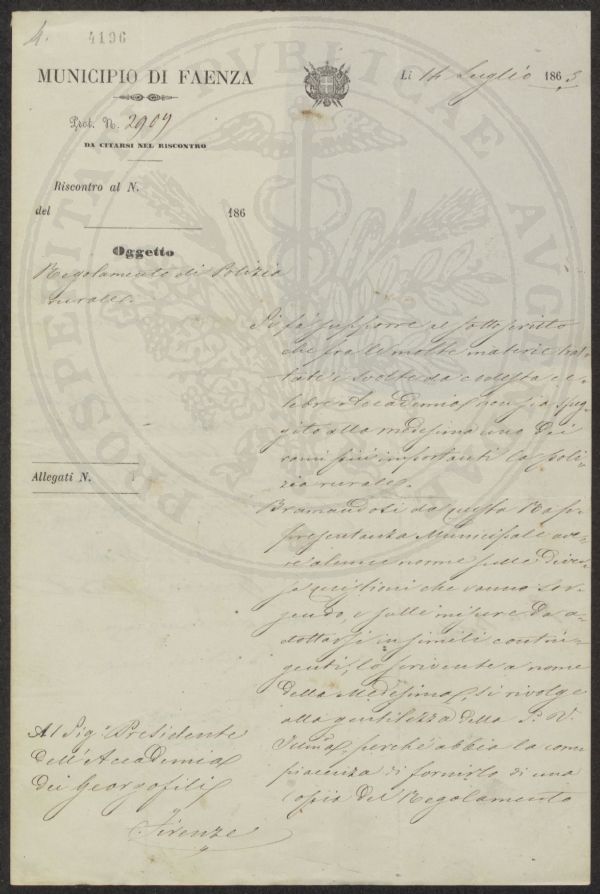 4. 4196
MUNICIPIO DI FAENZA
Lì 14 Luglio 1863
Prot. N. 2909
DA CITARSI NEL RISCONTRO
Riscontro al N.
del 186
Oggetto
Regolamento di Polizia
rurale.
Allegati N.
Si fà supporre il sottoscritto
che fra le molte materie trat-
tate e svolte da codesta ce-
lebre Accademia non sia sfug-
gito alla medesima uno dei
rami più importanti la poli-
zia rurale.
Bramandosi da questa Rap-
presentanza Municipale ave-
re alcune norme sulle diver-
se quistioni che vanno sor-
gendo, e sulle misure da a-
dottarsi in simili contin-
genti, lo scrivente a nome
della Medesima si rivolge
alla gentilezza della S. V.
Illma, perchè abbia la com-
piacenza di fornirlo di una
copia del Regolamento
Al Sig. Presidente
dell'Accademia
dei Georgofili
Firenze
PROSPERITATI PVBLICAE AVGE